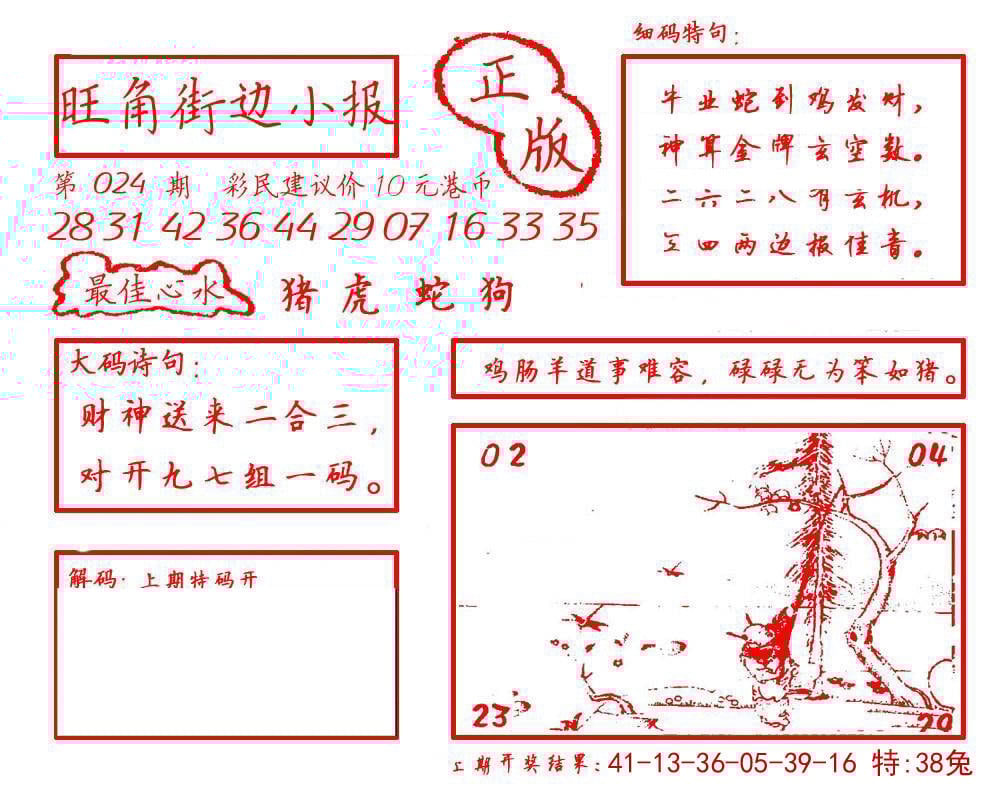 旺角街边小报
正版
第 024 期 彩民建议价 10 元港币
28 31 42 36 44 29 07 16 33 35
最佳心水
猪 虎 蛇 狗
细码特句：
牛业蛇到鸡发财，
神算金牌玄空数。
二六二八有玄机，
四两边报佳音。
大码诗句：
财神送来二合三，
对开九七组一码。
鸡肠羊道事难容，碌碌无为笨如猪。
02
04
23
20
解码·上期特码开
上期开奖结果：41-13-36-05-39-16 特:38兔